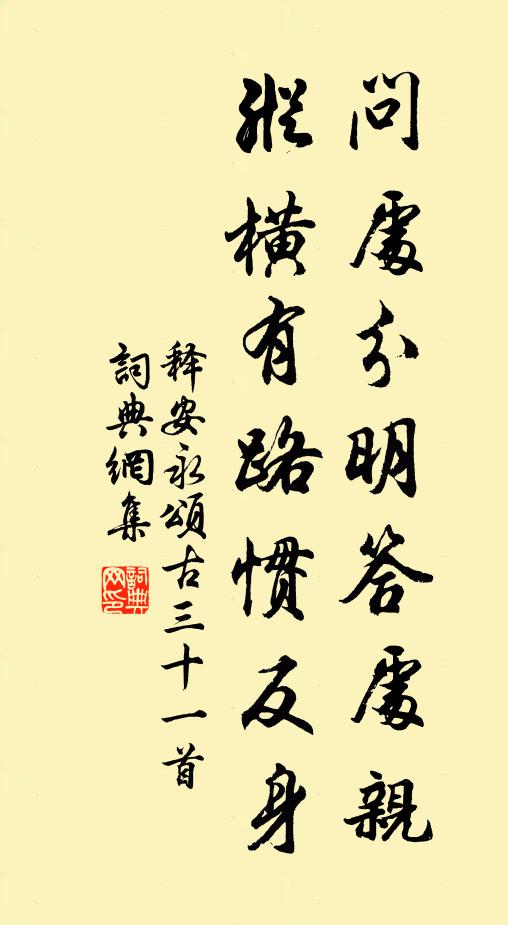 問處分明答處親
縱橫有路慣反身
释安永頌古三十一首
詞典網集
詞典網印